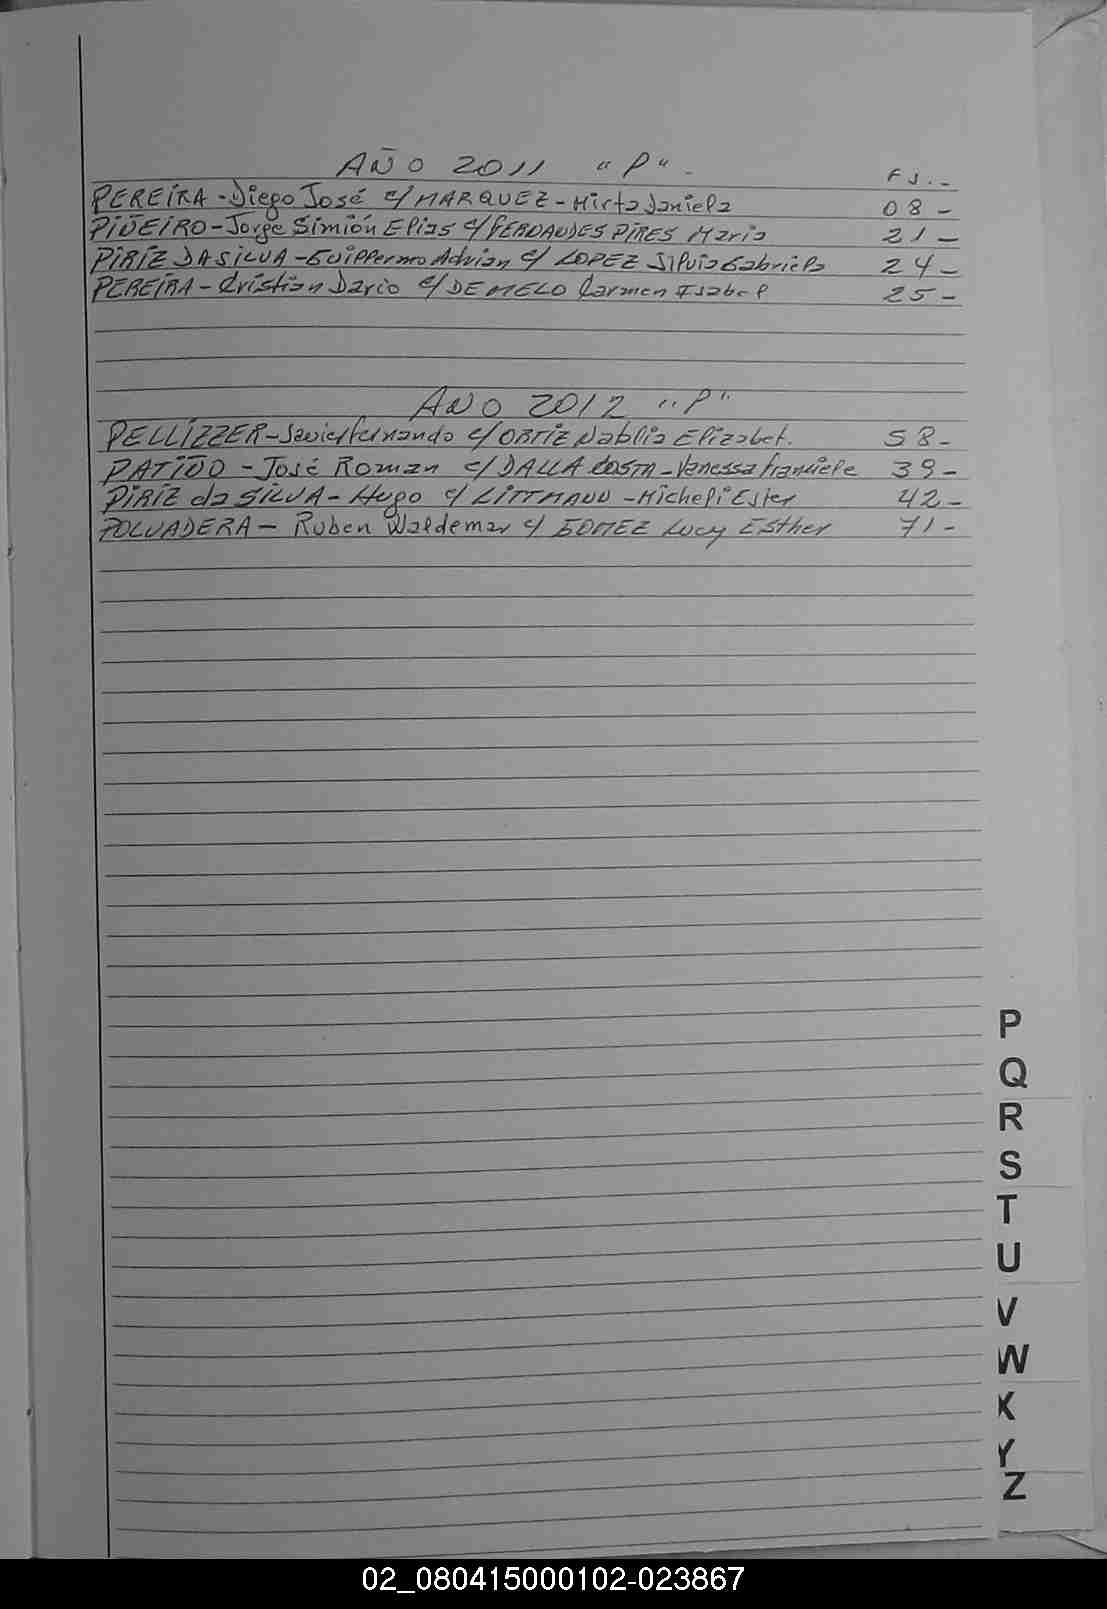 AÑO 2011 "P" - FJ.-
PEREIRA - Diego José c/ MARQUEZ - Mirta Daniela 08 -
PIÑEIRO - Jorge Simión Elias c/ FERNANDES PIRES Maria 21 -
PIRIZ DA SILVA - Guillermo Adrian c/ LOPEZ Silvia Gabriela 24 -
PEREIRA - Cristian Dario c/ DE MELO Carmen Isabel 25 -
AÑO 2012 "P"
PELLIZZER - Javier Fernando c/ ORTIZ Natalia Elizabet. 58 -
PATIÑO - José Roman c/ DALLA COSTA - Vanessa Franciele 39 -
PIRIZ da SILVA - Hugo c/ LITTMANN - Micheli Ester 42 -
POLVADERA - Ruben Waldemar c/ GOMEZ Lucy Esther 71 -
P
Q
R
S
T
U
V
W
X
Y
Z
02_080415000102-023867